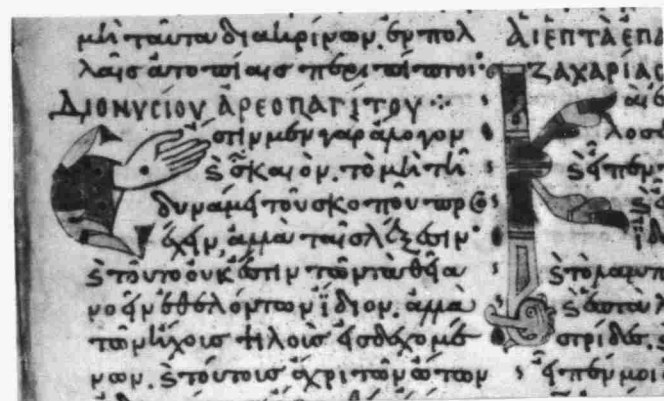 μὴ ταῦτα διακρίνων, ἐν πολ
λαῖς ἀτοπίαις περιπίπτοι·
ΔΙΟΝΥΣΙΟΥ ἈΡΕΟΠΑΓΙΤΟΥ
στιν μὲν γὰρ ἄλογον
ϗ σκαιὸν. τὸ μὴ τῆ
δυνάμει τοῦ σκοποῦ προσ
έχειν, ἀλλὰ ταῖς λέξεσιν·
ϗ τοῦτο οὐκ ἔστιν τῶν τὰ θεῖα
νοεῖν ἐθελόντων ἴδιον. ἀλλὰ
τῶν ἤχοις ψιλοῖς εἰσδεχομέ
νων. ϗ τούτοις ἄχρι τῶν ὤτων
ΑἹ ἙΠΤΑ ἘΠΑ
ΖΑΧΑΡΙΑΣ
λοσ
ϗ εἶπεν
ϗ τὸ λαμπ
στρίδες. ϗ
εἶπέν μοι